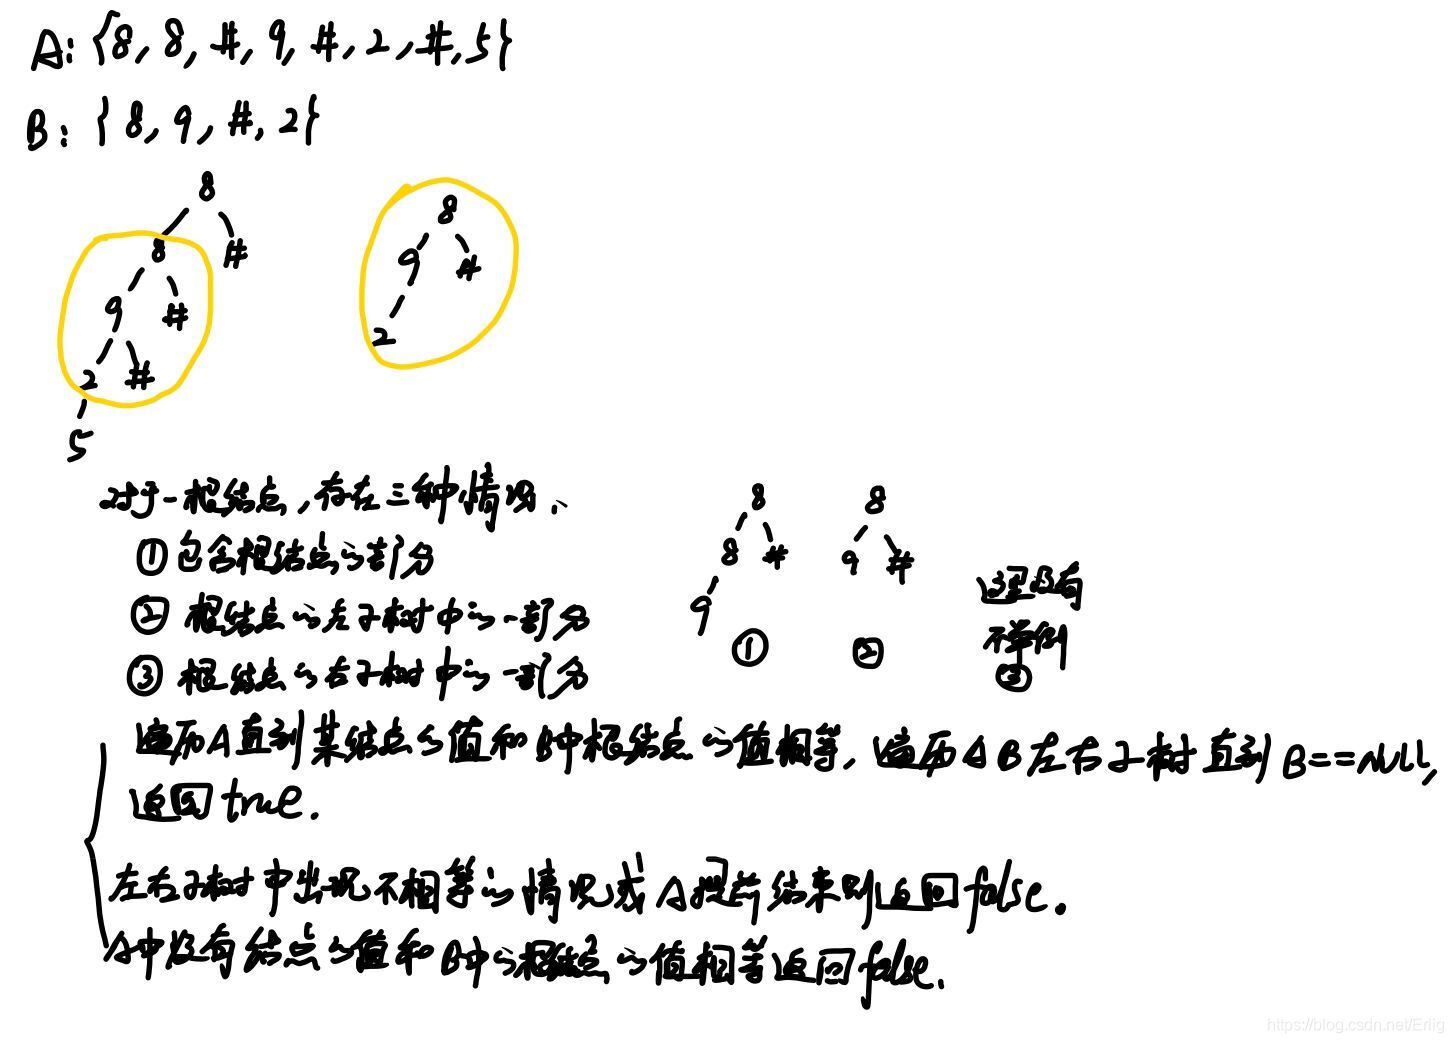 A: {8, 8, #, 9, #, 2, #, 5}
B: {8, 9, #, 2}
8
8 #
9 #
2 #
5
8
9 #
2
对于一根结点,存在三种情况、
①包含根结点的部分
②根结点的左子树中的一部分
③根结点的右子树中的一部分
8
8 #
9
①
8
9 #
②
这里没有
不举例
③
遍历A直到某结点的值和B中根结点的值相等,遍历AB左右子树直到B==NULL,
返回true.
左右子树中出现不相等的情况或A提前结束则返回false.
A中没有结点的值和B中的根结点的值相等返回false.
https://blog.csdn.net/Erlig